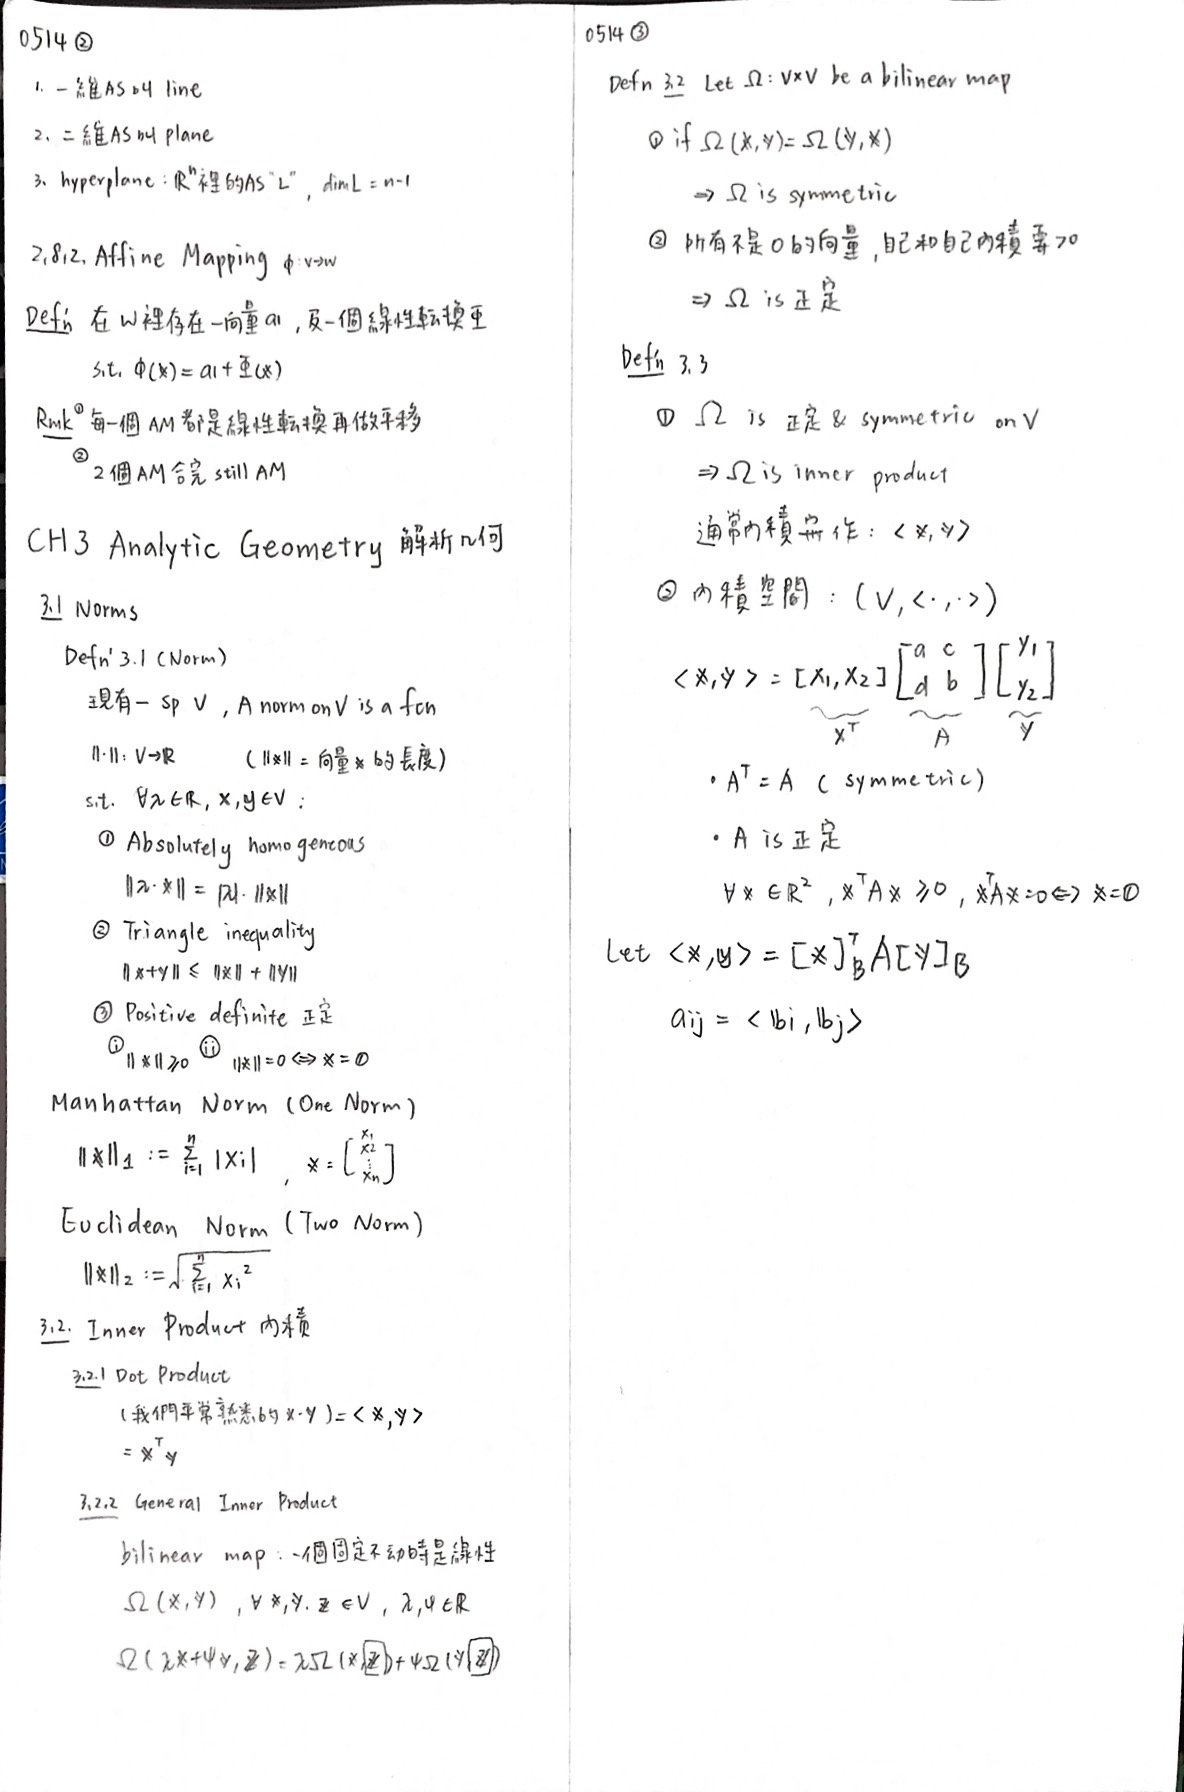 0514 ②
1. 一維AS by line
2. 二維AS by plane
3. hyperplane : ℝⁿ裡的AS "L" , dim L = n-1
2.8.2. Affine Mapping ϕ: V→W
Def'n 在 W 裡存在一向量 a , 及一個線性轉換 Φ
s.t. ϕ(x) = a + Φ(x)
Rmk ① 每一個 AM 都是線性轉換再做平移
② 2 個 AM 合完 still AM
CH3 Analytic Geometry 解析几何
3.1 Norms
Defn' 3.1 (Norm)
現有一 sp V , A norm on V is a fcn
‖·‖: V→ℝ (‖x‖ = 向量 x 的長度)
s.t. ∀λ∈ℝ, x, y∈V :
① Absolutely homogeneous
‖λ·x‖ = |λ|·‖x‖
② Triangle inequality
‖x+y‖ ≤ ‖x‖ + ‖y‖
③ Positive definite 正定
ⓘ ‖x‖≥0 ⓘⓘ ‖x‖=0 ⟺ x = 0
Manhattan Norm (One Norm)
‖x‖₁ := Σᵢ₌₁ⁿ |xᵢ| , x = [x₁ x₂ ⋮ xₙ]
Euclidean Norm (Two Norm)
‖x‖₂ := √(Σᵢ₌₁ⁿ xᵢ²)
3.2. Inner Product 內積
3.2.1 Dot Product
(我們平常熟悉的 x·y) = <x, y>
= xᵀy
3.2.2 General Inner Product
bilinear map : 一個固定不動時是線性
Ω(x, y) , ∀ x, y, z ∈V , λ, ψ∈ℝ
Ω(λx+ψy, z) = λΩ(x, z) + ψΩ(y, z)
0514 ③
Defn 3.2 Let Ω: V×V be a bilinear map
① if Ω(x, y) = Ω(y, x)
⇒ Ω is symmetric
② 所有不是 0 的向量, 自己和自己內積要>0
⇒ Ω is 正定
Def'n 3.3
① Ω is 正定 & symmetric on V
⇒ Ω is inner product
通常內積寫作 : <x, y>
② 內積空間 : (V, <·,·>)
<x, y> = [x₁, x₂] [a c d b] [y₁ y₂]
xᵀ A y
• Aᵀ = A (symmetric)
• A is 正定
∀ x ∈ℝ², xᵀAx ≥0, xᵀAx=0⟺ x=0
Let <x, y> = [x]ᵀ_B A[y]_B
aij = <bi, bj>